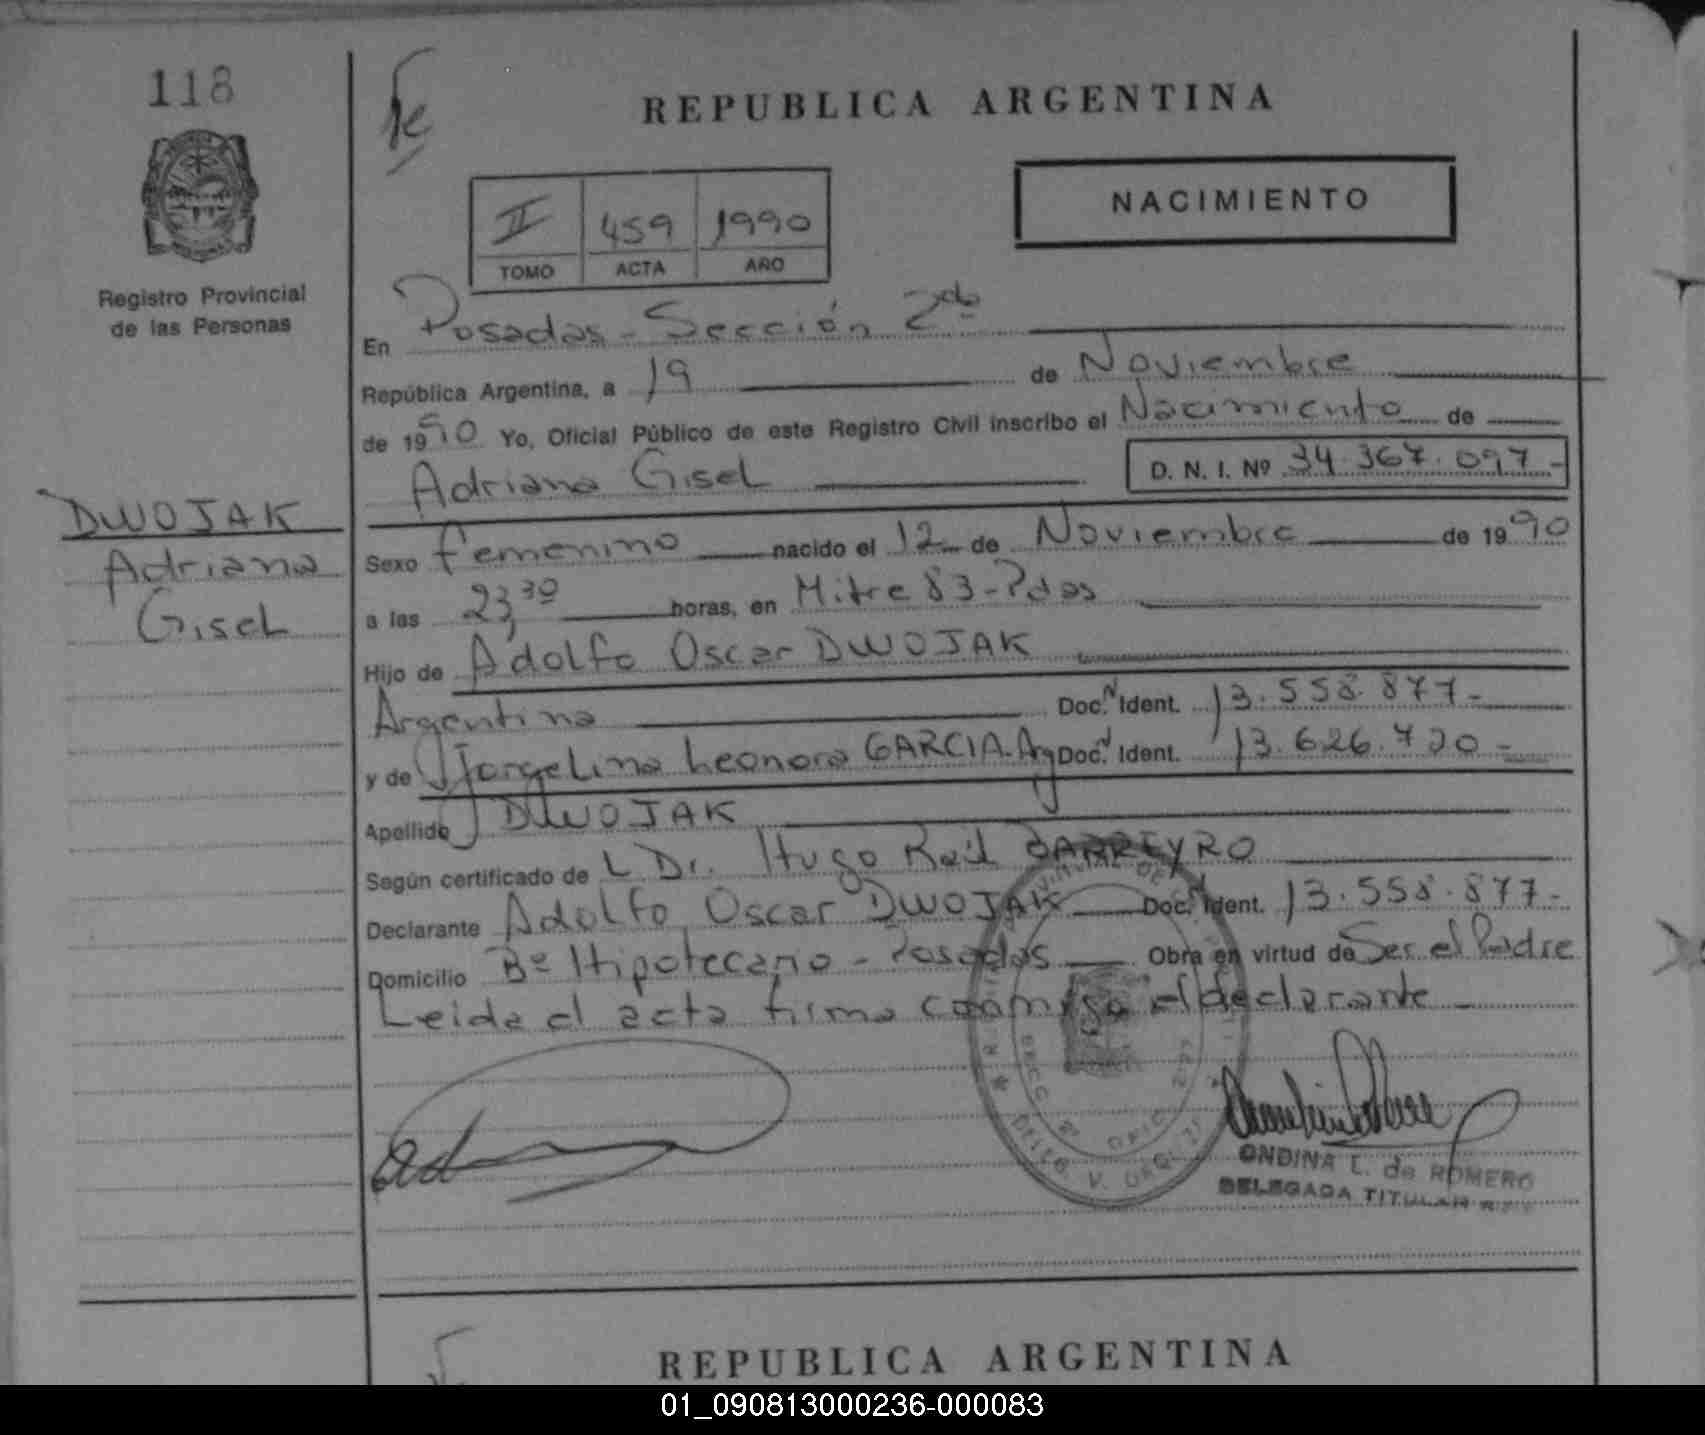 118
Registro Provincial
de las Personas
DWOJAK
Adriana
Gisel
REPUBLICA ARGENTINA
II 459 1990
TOMO ACTA AÑO
NACIMIENTO
En Posadas - Sección 2da
República Argentina, a 19 de Noviembre
de 1990 Yo, Oficial Público de este Registro Civil inscribo el Nacimiento de
Adriana Gisel D. N. I. Nº 34.367.097-
Sexo femenino nacido el 12 de Noviembre de 1990
a las 23,30 horas, en Mitre 83-Pdas
Hijo de Adolfo Oscar DWOJAK
Argentina Doc. N Ident. 13.558.877-
y de Jorgelina Leonora GARCIA-Arg Doc. N Ident. 13.626.720-
Apellido DWOJAK
Según certificado de L Dr. Hugo Raúl BARREYRO
Declarante Adolfo Oscar DWOJAK Doc. N Ident. 13.558.877-
Domicilio Bº Hipotecario - Posadas Obra en virtud de Ser el Padre
Leida el acta firma conmigo el declarante
ONDINA L. de ROMERO
DELEGADA TITULAR
REPUBLICA ARGENTINA
01_090813000236-000083